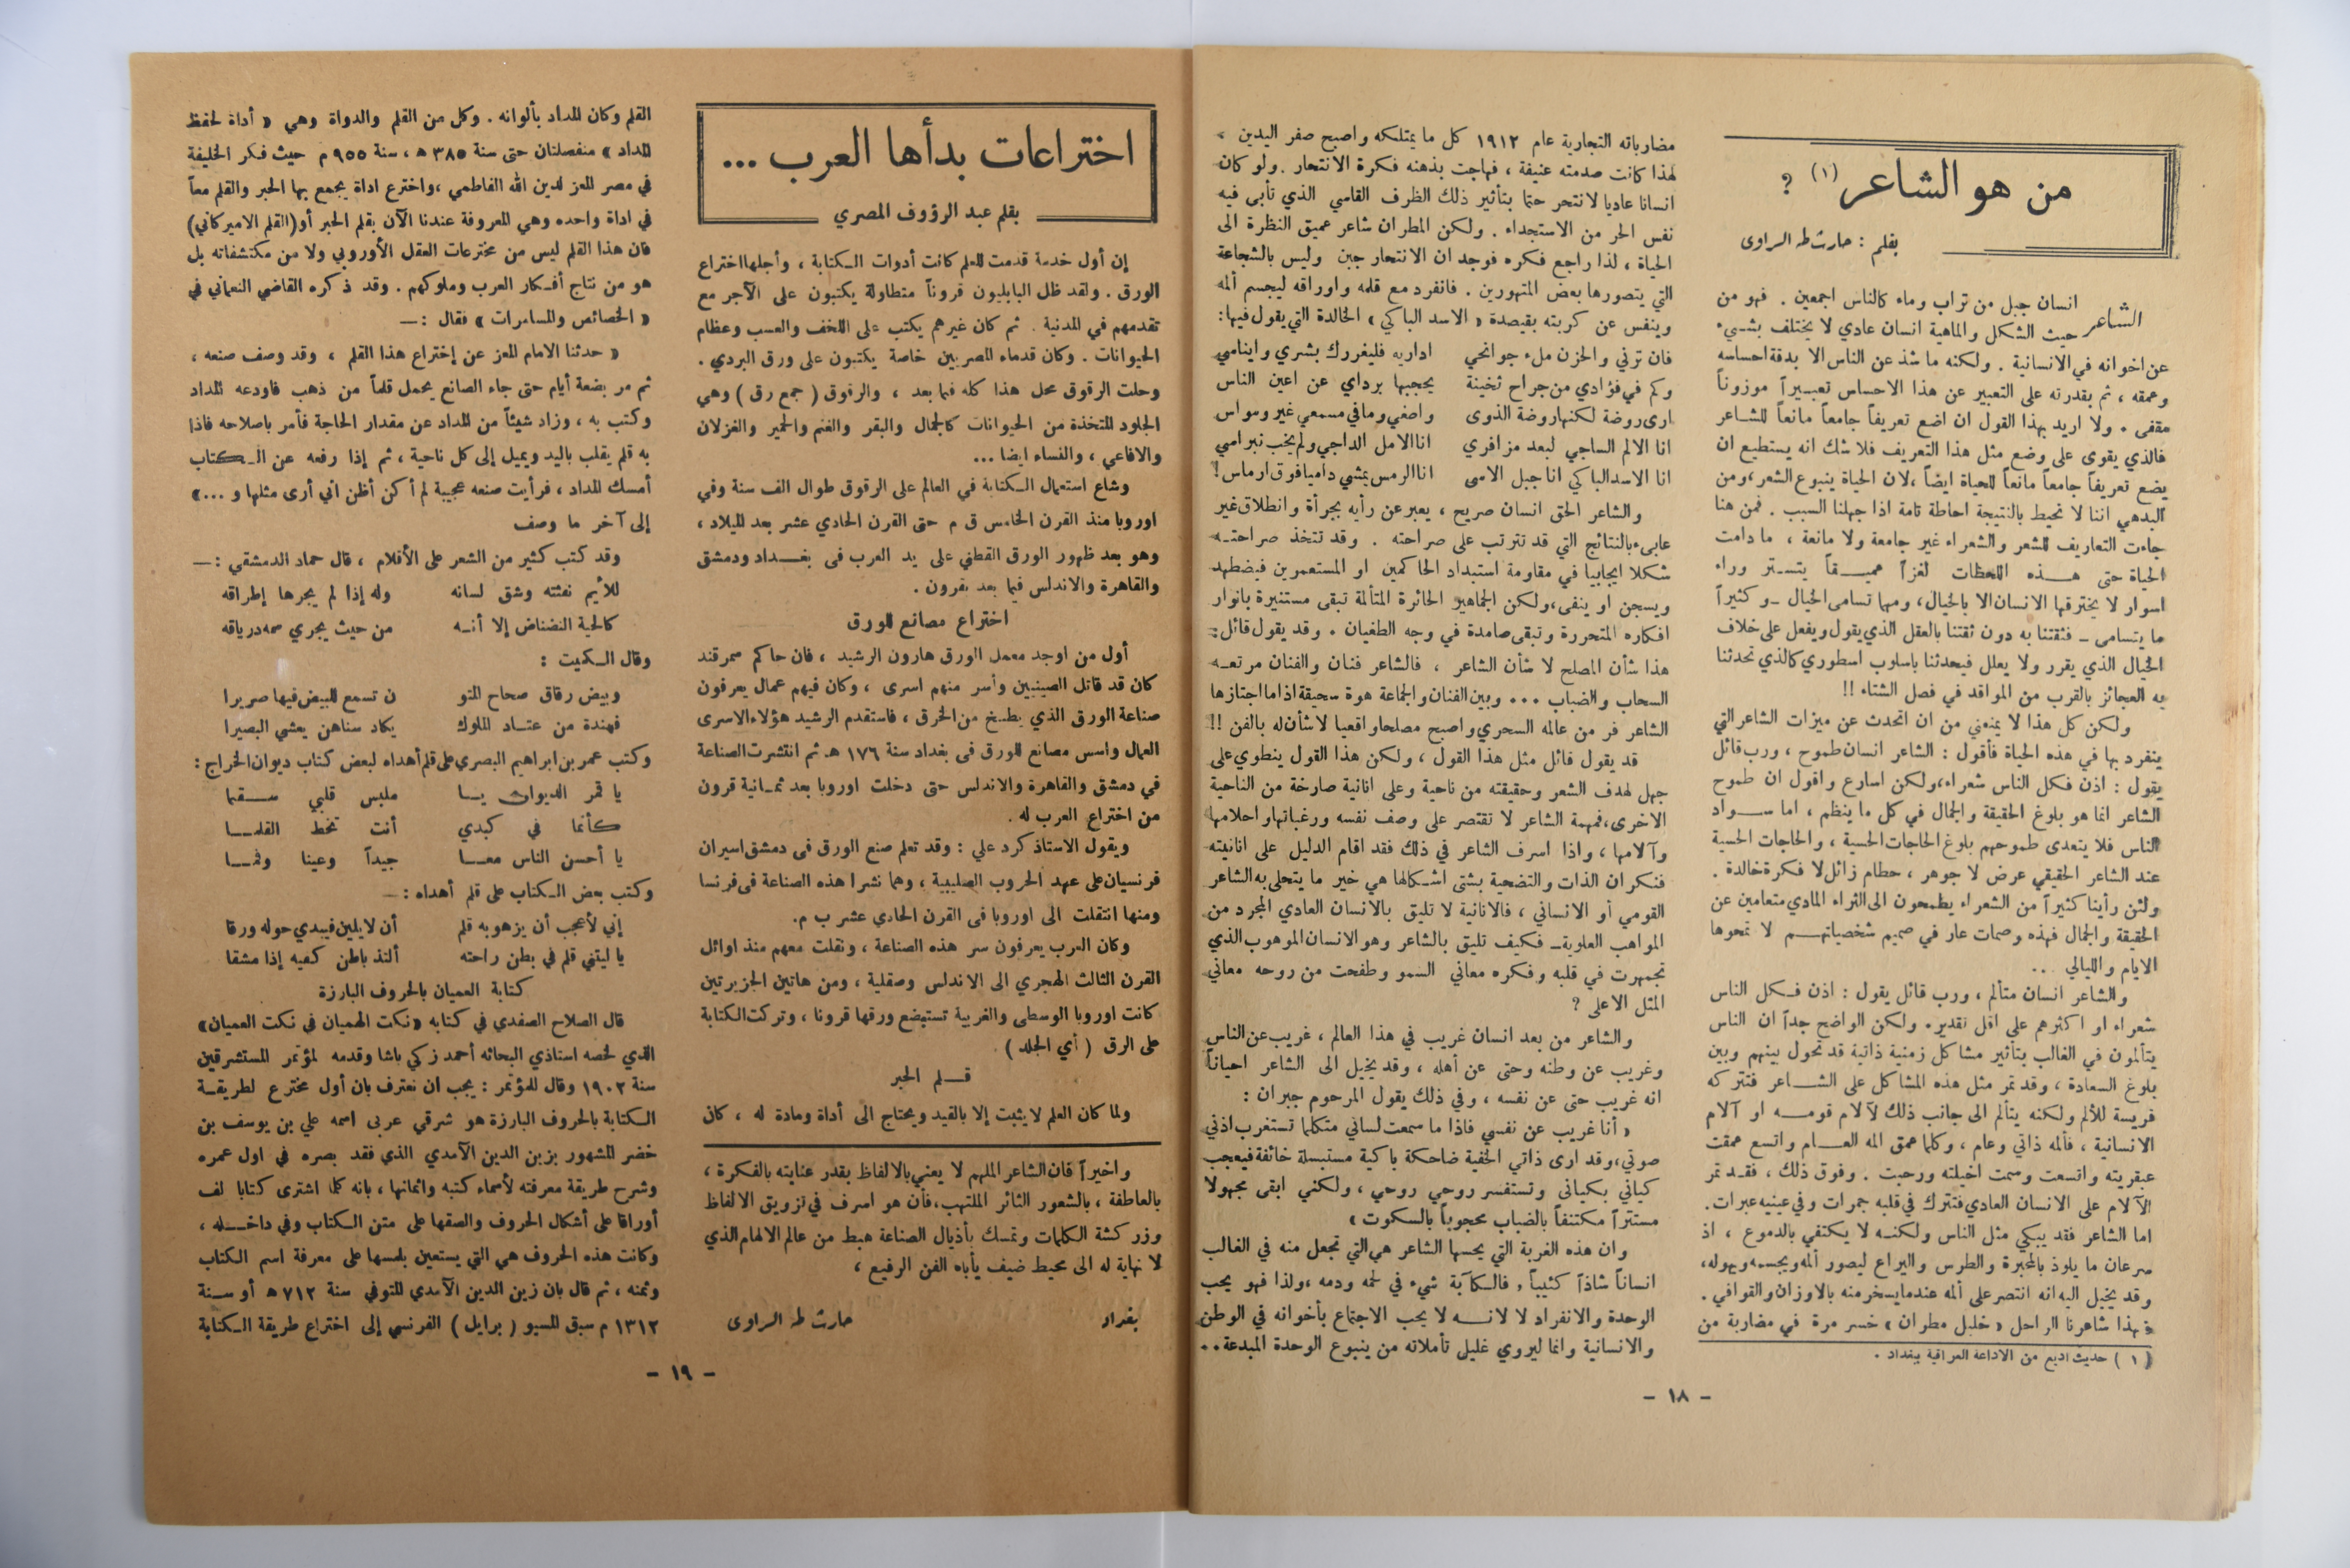 من هو الشاعر (١) ؟
بقلم : حارث طه الراوى
الشاعر انسان جبل من تراب وماء كالناس اجمعين . فهو من
حيث الشكل والماهية انسان عادي لا يختلف بشيء
عن اخوانه في الانسانية . ولكنه ما شذ عن الناس الا بدقة احساسه
وعمقه ، ثم بقدرته على التعبير عن هذا الاحساس تعبيراً موزوناً
مقفى . ولا اريد بهذا القول ان اضع تعريفاً جامعاً مانعاً للشاعر
فالذي يقوى على وضع مثل هذا التعريف فلا شك انه يستطيع ان
يضع تعريفاً جامعاً مانعاً للحياة ايضاً ،لان الحياة ينبوع الشعر،ومن
البدهي اننا لا نحيط بالنتيجة احاطة تامة اذا جهلنا السبب . فمن هنا
جاءت التعاريف للشعر والشعراء غير جامعة ولا مانعة ، ما دامت
الحياة حتى هذه اللحظات لغزاً عميقاً يتستر وراء
اسوار لا يخترقها الانسان الا بالخيال، ومهما تسامى الخيال ـ وكثيراً
ما يتسامى ـ فثقتنا به دون ثقتنا بالعقل الذي يقول ويفعل على خلاف
الخيال الذي يقرر ولا يعلل فيحدثنا باسلوب اسطوري كالذي تحدثنا
به العجائز بالقرب من المواقد في فصل الشتاء !!
ولكن كل هذا لا يمنعني من ان اتحدث عن ميزات الشاعر التي
ينفرد بها في هذه الحياة فأقول : الشاعر انسان طموح ، ورب قائل
يقول : اذن فكل الناس شعراء،ولكن اسارع واقول ان طموح
الشاعر انما هو بلوغ الحقيقة والجمال في كل ما ينظم ، اما سواد
الناس فلا يتعدى طموحهم بلوغ الحاجات الحسية ، والحاجات الحسية
عند الشاعر الحقيقي عرض لا جوهر ، حطام زائل لا فكرة خالدة .
ولئن رأينا كثيراً من الشعراء يطمحون الى الثراء المادي متعامين عن
الحقيقة والجمال فهذه وصمات عار في صميم شخصياتهم لا تمحوها
الايام والليالي ...
والشاعر انسان متألم ، ورب قائل يقول : اذن فكل الناس
شعراء او اكثرهم على اقل تقدير. ولكن الواضح جداً ان الناس
يتألمون في الغالب بتأثير مشاكل زمنية ذاتية قد تحول بينهم وبين
بلوغ السعادة ، وقد تمر مثل هذه المشاكل على الشاعر فتتركه
فريسة للألم ولكنه يتألم الى جانب ذلك لآلام قومه او آلام
الانسانية ، فألمه ذاتي وعام ، وكلما عمق المه العام واتسع عمقت
عبقريته واتسعت وسمت اخيلته ورحبت . وفوق ذلك ، فقد تمر
الآلام على الانسان العادي فتترك في قلبه جمرات وفي عينيه عبرات.
اما الشاعر فقد يبكي مثل الناس ولكنه لا يكتفي بالدموع ، اذ
سرعان ما يلوذ بالمحبرة والطرس واليراع ليصور ألمه ويجسمه ويهوله،
وقد يخيل اليه انه انتصر على ألمه عندما يسخر منه بالاوزان والقوافي .
فهذا شاعرنا الراحل «خليل مطران» خسر مرة في مضاربة من
(١) حديث اذيع من الاذاعة العراقية ببغداد .
مضارباته التجارية عام ١٩١٢ كل ما يمتلكه واصبح صفر اليدين ،
لهذا كانت صدمته عنيفة ، فهاجت بذهنه فكرة الانتحار . ولو كان
انسانا عاديا لانتحر حتما بتأثير ذلك الظرف القاسي الذي تأبى فيه
نفس الحر من الاستجداء . ولكن المطران شاعر عميق النظرة الى
الحياة ، لذا راجع فكره فوجد ان الانتحار جبن وليس بالشجاعة
التي يتصورها بعض المتهورين . فانفرد مع قلمه واوراقه ليجسم ألمه
وينفس عن كربته بقيصدة «الاسد الباكي» الخالدة التي يقول فيها:
فان ترني والحزن ملء جوانحي اداريه فليغررك بشري وايناسي
وكم في فؤادي من جراح ثخينة يحجبها برداي عن اعين الناس
ارى روضة لكنها روضة الذوى واصغي وما في مسمعي غير وسواس
انا الالم الساجي لبعد مزافري انا الامل الداجي ولم يخب نبراسي
انا الاسد الباكي انا جبل الاسى انا الرمس يمشي داميا فوق ارماس!
والشاعر الحق انسان صريح ، يعبر عن رأيه بجرأة وانطلاق غير
عابىء بالنتائج التي قد تترتب على صراحته . وقد تتخذ صراحته
شكلا ايجابيا في مقاومة استبداد الحاكمين او المستعمرين فيضطهد
ويسجن او ينفى،ولكن الجماهير الحائرة المتألمة تبقى مستنيرة بانوار
افكاره المتحررة وتبقى صامدة في وجه الطغيان . وقد يقول قائل:
هذا شأن المصلح لا شأن الشاعر ، فالشاعر فنان والفنان مرتعه
السحاب والضباب ... وبين الفنان والجماعة هوة سحيقة اذا ما اجتازها
الشاعر فر من عالمه السحري واصبح مصلحا واقعيا لا شأن له بالفن !!
قد يقول قائل مثل هذا القول ، ولكن هذا القول ينطوي على
جهل لهدف الشعر وحقيقته من ناحية وعلى انانية صارخة من الناحية
الاخرى،فمهمة الشاعر لا تقتصر على وصف نفسه ورغباتها واحلامها
وآلامها ، واذا اسرف الشاعر في ذلك فقد اقام الدليل على انانيته
فنكران الذات والتضحية بشتى اشكالها هي خير ما يتحلى به الشاعر
القومي أو الانساني ، فالانانية لا تليق بالانسان العادي المجرد من
المواهب العلوية ـ فكيف تليق بالشاعر وهو الانسان الموهوب الذي
تجمهرت في قلبه وفكره معاني السمو وطفحت من روحه معاني
المثل الاعلى ؟
والشاعر من بعد انسان غريب في هذا العالم ، غريب عن الناس
وغريب عن وطنه وحتى عن أهله ، وقد يخيل الى الشاعر احياناً
انه غريب حتى عن نفسه ، وفي ذلك يقول المرحوم جبران :
« أنا غريب عن نفسي فاذا ما سمعت لساني متكلما تستغرب اذني
صوتي،وقد ارى ذاتي الخفية ضاحكة باكية مستبسلة خائفة فيعجب
كياني بكياني وتستفسر روحي روحي ، ولكني ابقى مجهولا
مستتراً مكتنفاً بالضباب محجوباً بالسكوت»
وان هذه الغربة التي يحسها الشاعر هي التي تجعل منه في الغالب
انساناً شاذاً كئيباً . فالكآبة شيء في لحمه ودمه ،ولذا فهو يحب
الوحدة والانفراد لا لانه لا يحب الاجتماع بأخوانه في الوطن
والانسانية وانما ليروي غليل تأملاته من ينبوع الوحدة المبدعة..
- ١٨ -
اختراعات بدأها العرب ...
بقلم عبد الرؤوف المصري
إن أول خدمة قدمت للعلم كانت أدوات الكتابة ، وأجلها اختراع
الورق . ولقد ظل البابليون قروناً متطاولة يكتبون على الآجر مع
تقدمهم في المدنية . ثم كان غيرهم يكتب على اللخف والعسب وعظام
الحيوانات . وكان قدماء المصريين خاصة يكتبون على ورق البردي .
وحلت الرقوق محل هذا كله فيما بعد ، والرقوق (جمع رق) وهي
الجلود المتخذة من الحيوانات كالجمال والبقر والغنم والحمير والغزلان
والافاعي ، والنساء ايضا ...
وشاع استعمال الكتابة في العالم على الرقوق طوال الف سنة وفي
اوروبا منذ القرن الخامس ق م حتى القرن الحادي عشر بعد الميلاد ،
وهو بعد ظهور الورق القطني على يد العرب فى بغداد ودمشق
والقاهرة والاندلس فيما بعد بقرون .
اختراع مصانع للورق
أول من اوجد معمل الورق هارون الرشيد ، فان حاكم سمرقند
كان قد قاتل الصينيين وأسر منهم اسرى ، وكان فيهم عمال يعرفون
صناعة الورق الذي يطبخ من الخرق ، فاستقدم الرشيد هؤلاء الاسرى
العمال واسس مصانع للورق فى بغداد سنة ١٧٦ هـ ثم انتشرت الصناعة
في دمشق والقاهرة والاندلس حتى دخلت اوروبا بعد ثمانية قرون
من اختراع العرب له .
ويقول الاستاذ كرد علي : وقد تعلم صنع الورق فى دمشق اسيران
فرنسيان على عهد الحروب الصليبية ، وهما نشرا هذه الصناعة فى فرنسا
ومنها انتقلت الى اوروبا فى القرن الحادي عشر ب م.
وكان العرب يعرفون سر هذه الصناعة ، ونقلت معهم منذ اوائل
القرن الثالث الهجري الى الاندلس وصقلية ، ومن هاتين الجزيرتين
كانت اوروبا الوسطى والغربية تستبضع ورقها قرونا ، وتركت الكتابة
على الرق (أي الجلد) .
قلم الحبر
ولما كان العلم لا يثبت إلا بالقيد ويحتاج الى أداة ومادة له ، كان
واخيراً فان الشاعر الملهم لا يعني بالالفاظ بقدر عنايته بالفكرة ،
بالعاطفة ، بالشعور الثائر الملتهب،فأن هو اسرف في تزويق الالفاظ
وزركشة الكلمات وتمسك بأذيال الصناعة هبط من عالم الالهام الذي
لا نهاية له الى محيط ضيف يأباه الفن الرفيع ،
بغداد حارث طه الراوى
القلم وكان المداد بألوانه . وكل من القلم والدواة وهي « أداة لحفظ
المداد » منفصلتان حتى سنة ٣٨٥ هـ ، سنة ٩٥٥ م حيث فكر الخليفة
في مصر المعز لدين الله الفاطمي ،واخترع اداة يجمع بها الحبر والقلم معاً
في اداة واحده وهي المعروفة عندنا الآن بقلم الحبر أو(القلم الاميركاني)
فان هذا القلم ليس من مخترعات العقل الأوروبي ولا من مكتشفاته بل
هو من نتاج أفكار العرب وملوكهم . وقد ذكره القاضي النعماني في
« الخصائص والمسامرات » فقال : —
« حدثنا الامام المعز عن إختراع هذا القلم ، وقد وصف صنعه ،
ثم مر بضعة أيام حتى جاء الصانع يحمل قلماً من ذهب فاودعه المداد
وكتب به ، وزاد شيئاً من المداد عن مقدار الحاجة فأمر باصلاحه فاذا
به قلم يقلب باليد ويميل إلى كل ناحية ، ثم إذا رفعه عن الكتاب
أمسك المداد ، فرأيت صنعه عجيبة لم أكن أظن اني أرى مثلها و ...»
إلى آخر ما وصف
وقد كتب كثير من الشعر على الأقلام ، قال حماد الدمشقي : —
للأيم نفثته وشق لسانه وله إذا لم يجرها إطراقه
كالحية النضناض إلا أنه من حيث يجري سمه درياقه
وقال الكميت :
وبيض رقاق صحاح المتو ن تسمع للبيض فيها صريرا
فهندة من عتاد الملوك يكاد سناهن يعشي البصيرا
وكتب عمر بن ابراهيم البصري على قلم أهداه لبعض كتاب ديوان الخراج :
يا قمر الديوان يا ملبس قلبي سقما
كأنما في كبدي أنت تخط القلما
يا أحسن الناس معا جيداً وعينا وفما
وكتب بعض الكتاب على قلم أهداه : —
إني لأعجب أن يزهو به قلم أن لا يلين فيبدي حوله ورقا
يا ليتني قلم في بطن راحته ألتذ باطن كفيه إذا مشقا
كتابة العميان بالحروف البارزة
قال الصلاح الصفدي في كتابه «نكت الهميان في نكت العميان»
الذي لخصه استاذي البحاثه أحمد زكي باشا وقدمه لمؤتمر المستشرقين
سنة ١٩٠٢ وقال للمؤتمر : يجب ان نعترف بان أول مخترع لطريقة
الكتابة بالحروف البارزة هو شرقي عربى اسمه علي بن يوسف بن
خضر المشهور بزين الدين الآمدي الذي فقد بصره في اول عمره
وشرح طريقة معرفته لأسماء كتبه واثمانها ، بانه كلما اشترى كتابا لف
أوراقا على أشكال الحروف والصقها على متن الكتاب وفي داخله ،
وكانت هذه الحروف هي التي يستعين بلمسها على معرفة اسم الكتاب
وثمنه ، ثم قال بان زين الدين الآمدي المتوفي سنة ٧١٢ هـ أو سنة
١٣١٢ م سبق المسيو (برايل) الفرنسي إلى اختراع طريقة الكتابة
- ١٩ -